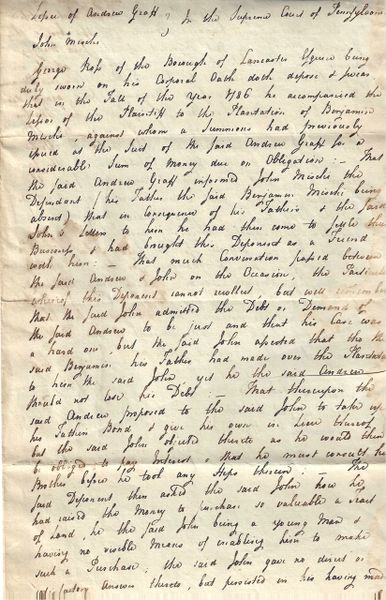 Lessee of Andrew Graff } In the Supreme Court of Pennsylvania
John Mischi
George Ross of the Borough of Lancaster Esquire being
duly sworn on his Corporal Oath doth depose & swear
that in the Fall of the Year 1786 he accompanied the
Lessor of the Plaintiff to the Plantation of Benjamin
Mischi, against whom a Summons had previously
issued at the Suit of the said Andrew Graff for a
considerable Sum of Money due on Obligation: – That
the said Andrew Graff informed John Mischi the
Defendant (his Father the said Benjamin Mischi being
absent) that in Consequence of his Father's & the said
John's Letters to him he had then come to settle the
Business & had brought this Deponent as a Friend
with him: That much Conversation passed between
the said Andrew & John on the Occasion, the Particulars
whereof this Deponent cannot recollect, but well remembers
that the said John admitted the Debt or Demand of
the said Andrew to be just and that his Case was
a hard one but the said John asserted that tho the
said Benjamin his Father had made over the Plantation
to him the said John yet he the said Andrew
should not lose his Debt. That thereupon the
said Andrew proposed to the said John to take up
his Fathers Bond & give his own in Lieu thereof
but the said John objected thereto as he would then
be obliged to pay Interest & that he must consult his
Brother before he took any Steps therein: The
said Deponent then asked the said John how he
had raised the Money to purchase so valuable a Tract
of Land, he the said John being a young Man &
having no visible Means of enabling him to make
such a Purchase; the said John gave no direct or
Answer thereto, but persisted in his having made